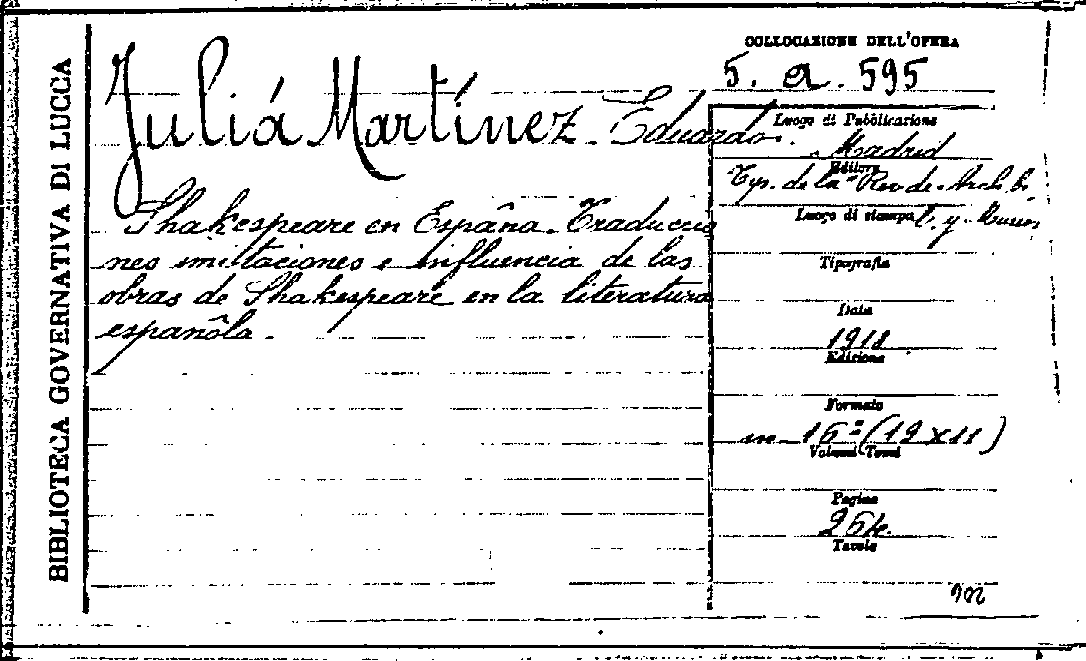 BIBLIOTECA GOVERNATIVA DI LUCCA
COLLOCAZIONE DELL'OPERA
5. a. 595
Juliá Martínez Eduardo.
Shakespeare en Espāna. Traduccio
nes imitaciones e influencia de las
obras de Shakespeare en la literatura
espanôla.
Luogo di Pubblicazione
Madrid
Editore
Typ. de la Rev. de Arch. b.
Luogo di stampa
y Museos
Tipografia
Data
1918
Edizione
Formato
in 16º (19 x 11)
Volumi Tomi
Pagine
264.
Tavole